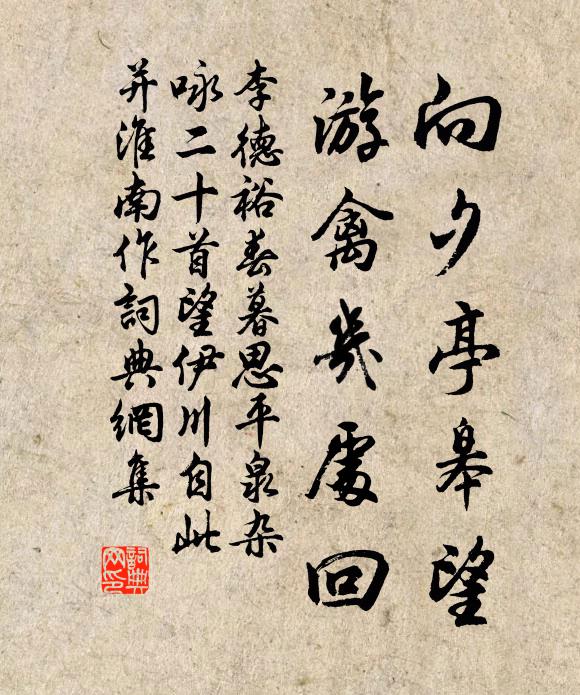 向夕亭皋望
游禽幾處回
李德裕春暮思平泉杂
咏二十首望伊川自此
并淮南作詞典網集
詞典
网印